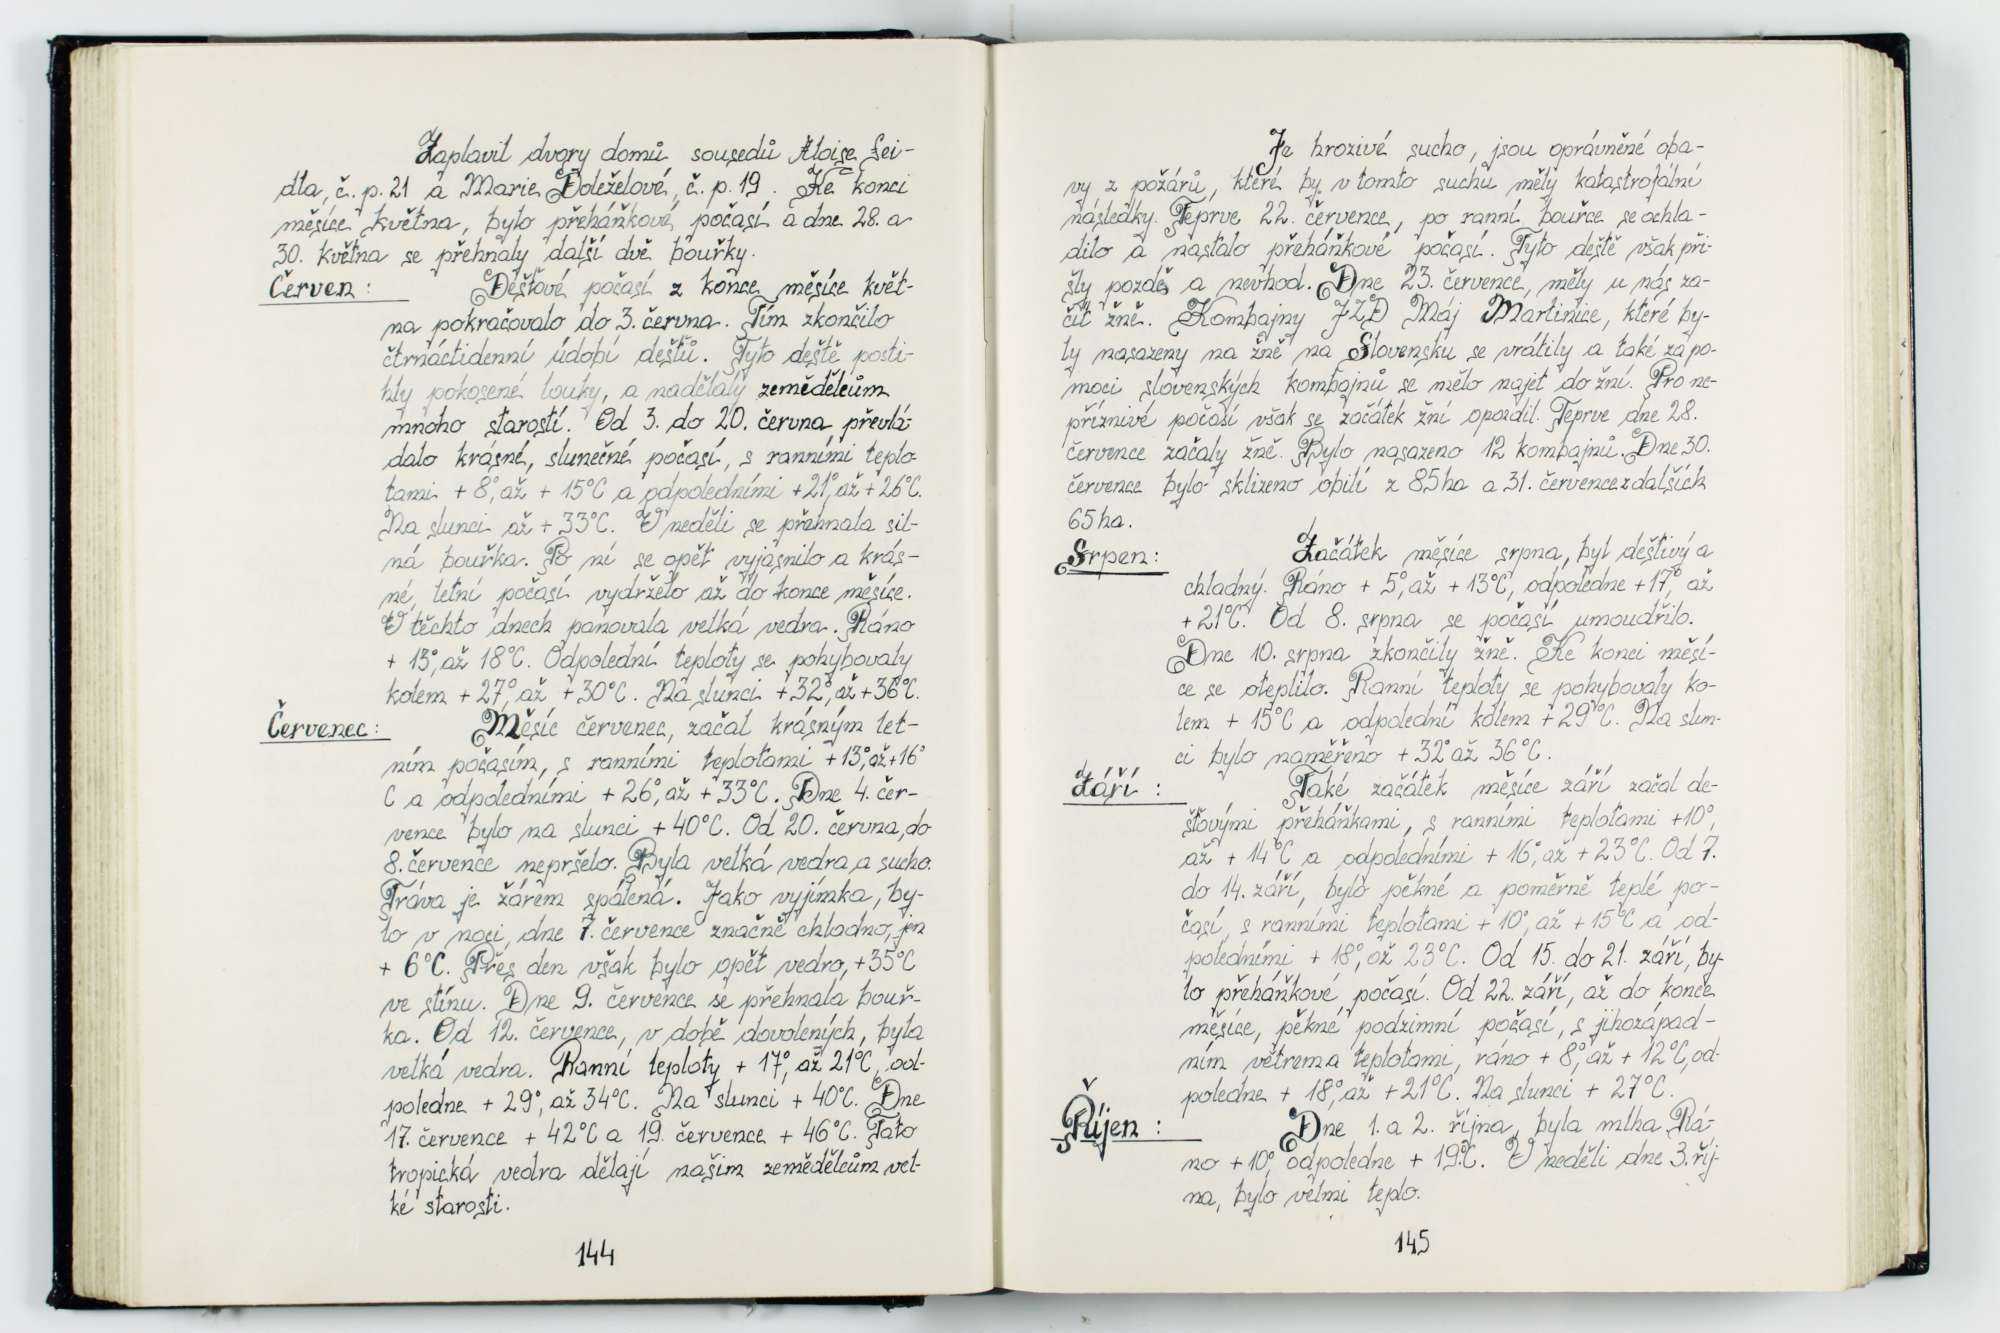 Zaplavil dvory domů sousedů Aloise Sei-
dla, č. p. 21 a Marie Doleželové, č. p. 19. Ke konci
měsíce května, bylo přeháňkové počasí a dne 28. a
30. května se přehnaly další dvě bouřky.
Červen: Dešťové počasí z konce měsíce květ-
na pokračovalo do 3. června. Tím zkončilo
čtrnáctidenní údobí dešťů. Tyto deště posti-
hly pokosené louky, a nadělaly zemědělcům
mnoho starostí. Od 3. do 20. června převlá-
dalo krásné, slunečné počasí, s ranními teplo
tami + 8°, až + 15°C a odpoledními +21°, až +26°C.
Na slunci až + 33°C. V neděli se přehnala sil-
ná bouřka. Po ní se opět vyjasnilo a krás-
né, letní počasí vydrželo až do konce měsíce.
V těchto dnech panovala velká vedra. Ráno
+ 13°, až 18°C. Odpolední teploty se pohybovaly
kolem + 27°, až +30°C. Na slunci +32°, až +36°C.
Červenec: Měsíc červenec, začal krásným let-
ním počasím, s ranními teplotami +13°, až +16°
C a odpoledními + 26°, až + 33°C. Dne 4. čer-
vence bylo na slunci +40°C. Od 20. června, do
8. července nepršelo. Byla velká vedra a sucho.
Tráva je žárem spálená. Jako vyjímka, by-
lo v noci, dne 7. července značně chladno, jen
+ 6°C. Přes den však bylo opět vedro, +35°C
ve stínu. Dne 9. července se přehnala bouř-
ka. Od 12. července, v době dovolených, byla
velká vedra. Ranní teploty + 17°, až 21°C, od-
poledne + 29°, až 34°C. Na slunci + 40°C. Dne
17. července + 42°C a 19. července + 46°C. Tato
tropická vedra dělají našim zemědělcům vel-
ké starosti.
144
Je hrozivé sucho, jsou oprávněné oba-
vy z požárů, které by v tomto suchu měly katastrofální
následky. Teprve 22. července, po ranní bouřce se ochla-
dilo a nastalo přeháňkové počasí. Tyto deště však při-
šly pozdě a nevhod. Dne 23. července, měly u nás za-
čít žně. Kombajny JZD Máj Martinice, které by-
ly nasazeny na žně na Slovensku se vrátily a také za po-
moci slovenských kombajnů se mělo najet do žní. Pro ne-
příznivé počasí však se začátek žní opozdil. Teprve dne 28.
července začaly žně. Bylo nasazeno 12 kombajnů. Dne 30.
července bylo sklizeno obilí z 85ha a 31. července z dalších
65ha.
Srpen: Začátek měsíce srpna, byl deštivý a
chladný. Ráno + 5°, až + 13°C, odpoledne +17°, až
+21°C. Od 8. srpna se počasí umoudřilo.
Dne 10. srpna zkončily žně. Ke konci měsí-
ce se oteplilo. Ranní teploty se pohybovaly ko-
lem + 15°C a odpolední kolem + 29°C. Na slun-
ci bylo naměřeno + 32° až 36°C.
Září: Také začátek měsíce září začal de-
šťovými přeháňkami, s ranními teplotami +10°,
až + 14°C a odpoledními + 16°, až + 23°C. Od 7.
do 14. září, bylo pěkné a poměrně teplé po-
časí, s ranními teplotami + 10°, až + 15°C a od-
poledními + 18°, až 23°C. Od 15. do 21. září, by-
lo přeháňkové počasí. Od 22. září, až do konce
měsíce, pěkné podzimní počasí, s jihozápad-
ním větrem a teplotami, ráno + 8°, až + 12°C, od-
poledne + 18°, až +21°C. Na slunci + 27°C.
Říjen: Dne 1. a 2. října, byla mlha. Rá-
no +10°, odpoledne + 19°C. V neděli dne 3. říj-
na, bylo velmi teplo.
145